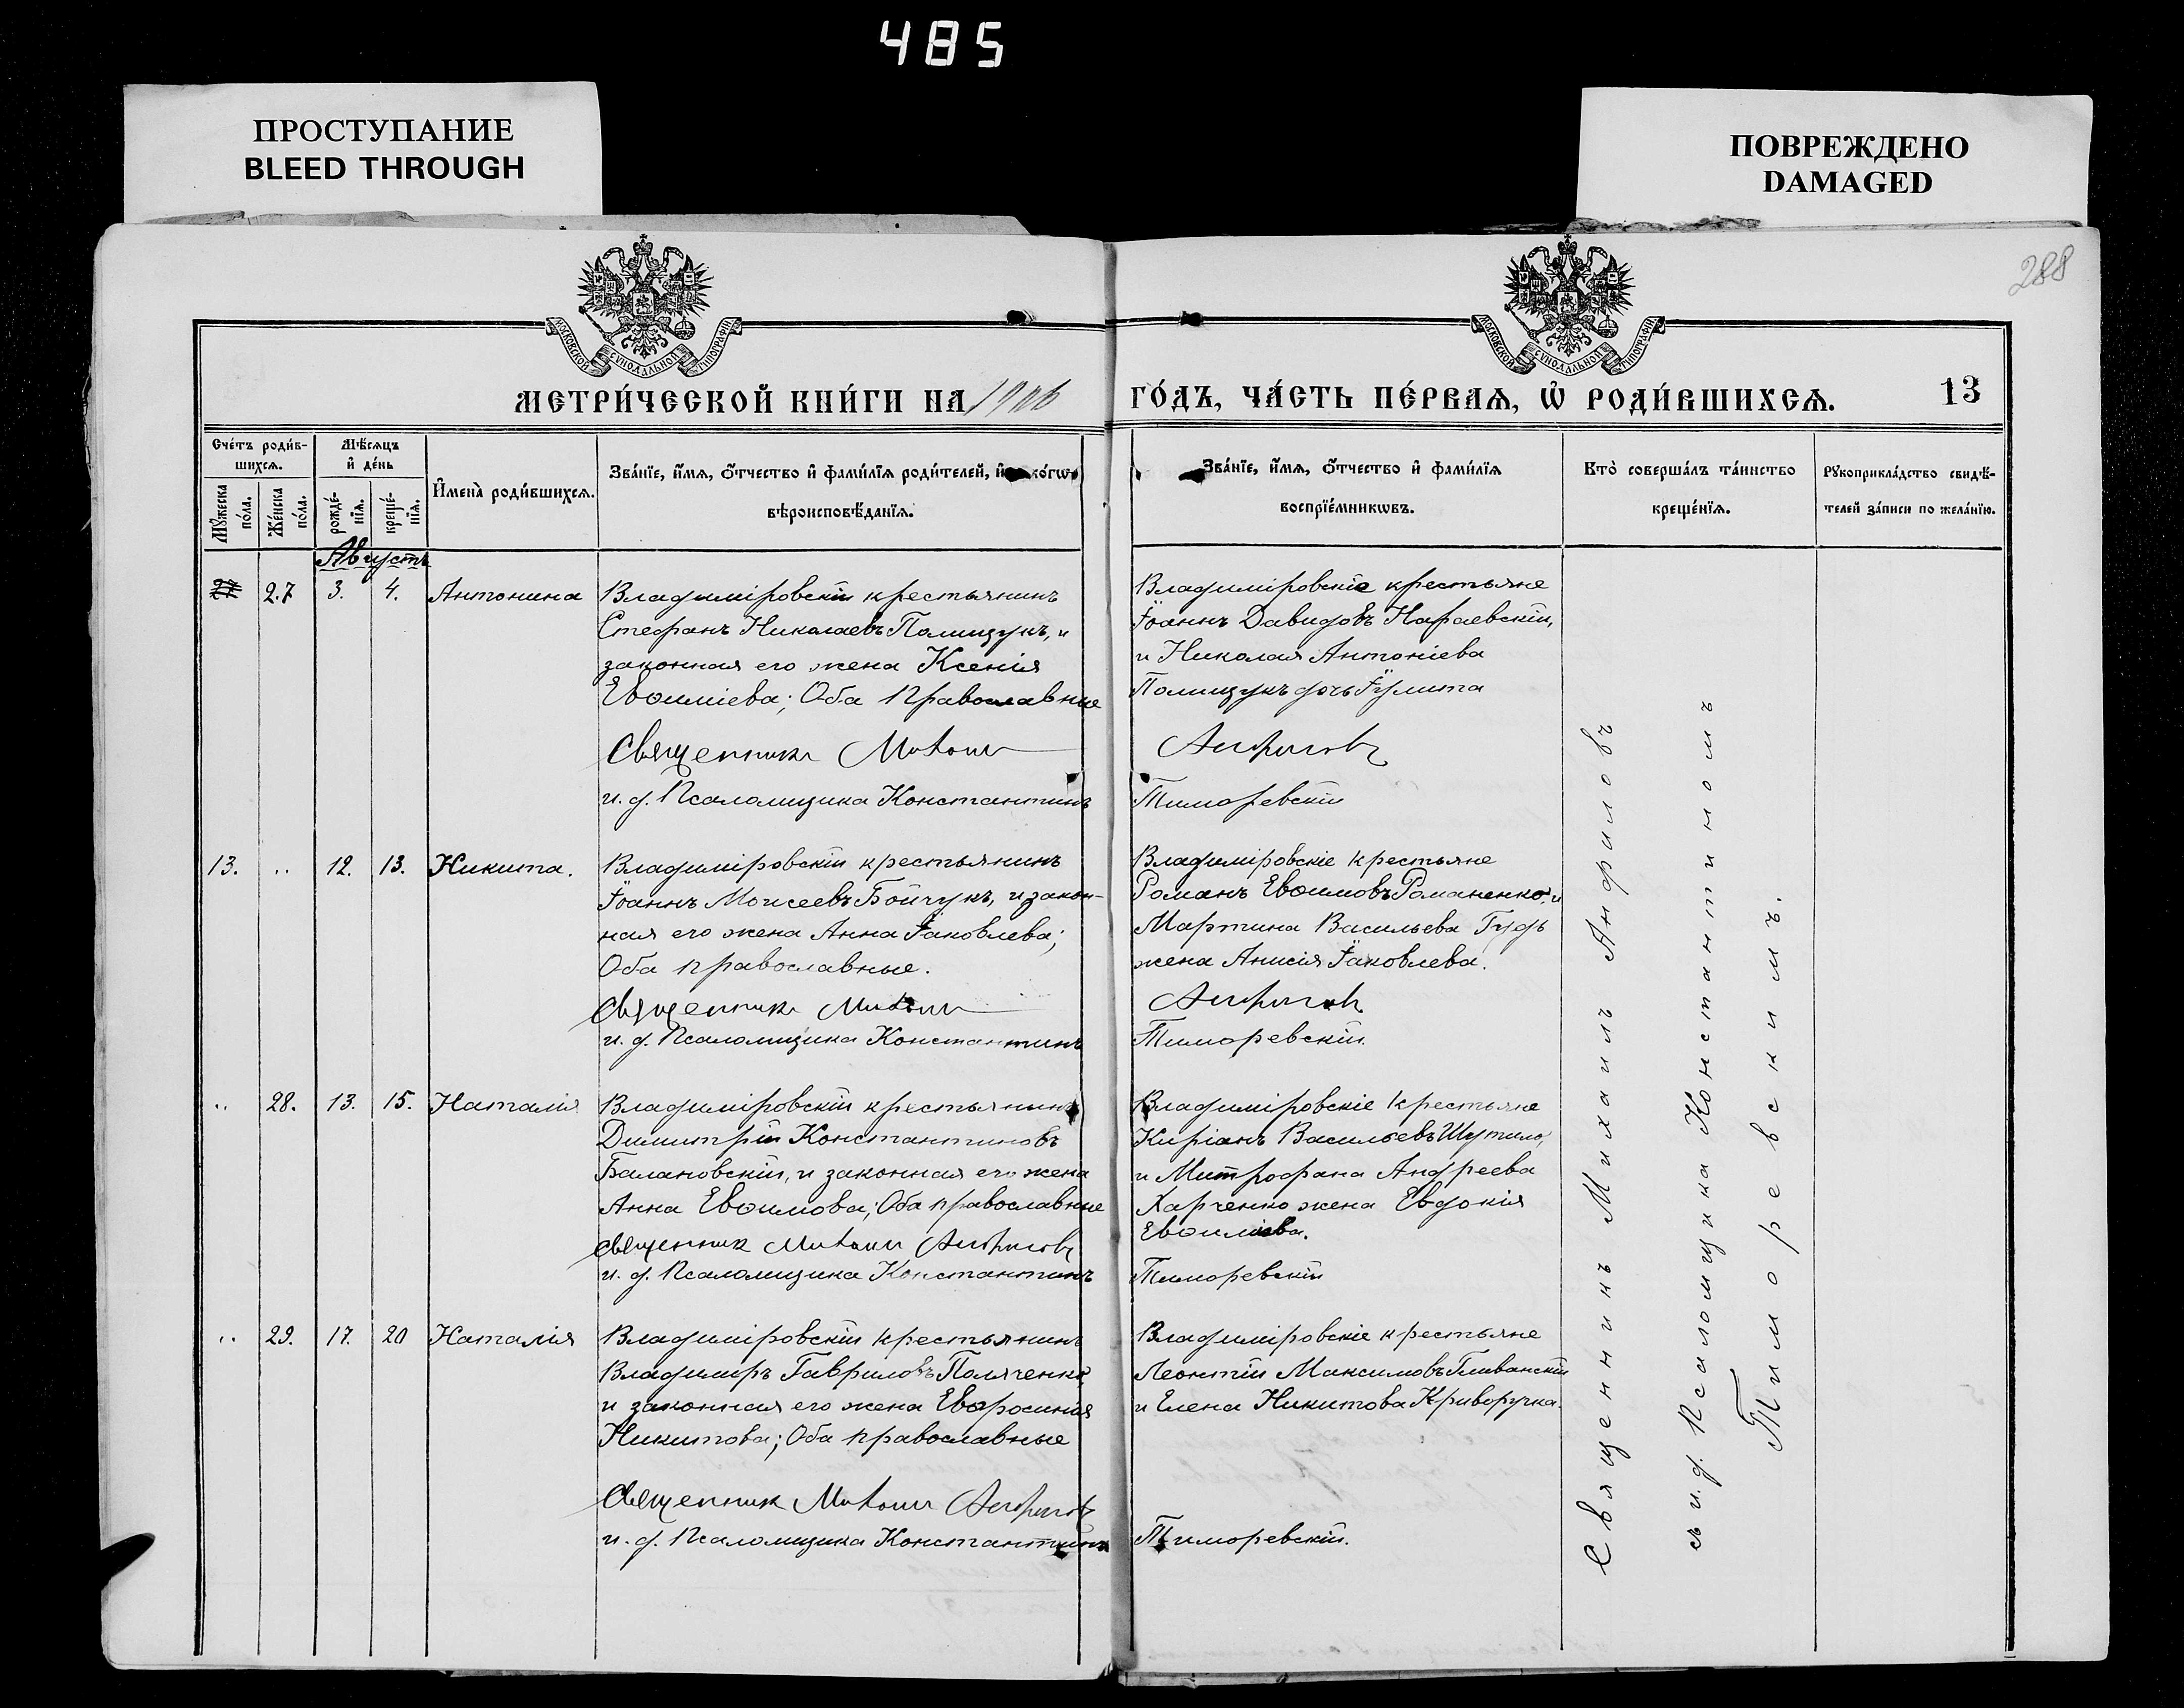 485
ПРОСТУПАНИЕ
BLEED THROUGH
ПОВРЕЖДЕНО
DAMAGED
288
МОСКОВСКОЙ СѴНОДАЛЬНОЙ ТИПОГРАФІИ
МОСКОВСКОЙ СѴНОДАЛЬНОЙ ТИПОГРАФІИ
МЕТРИ́ЧЕСКОЙ КНИ́ГИ НА 1906
ГО́ДЪ, ЧА́СТЬ ПЕ́РВАѦ, Ѡ҆ РОДИ́ВШИХСѦ.
13
Сче́тъ роди́в-
шихсѧ.
Мꙋ́жеска
по́ла.
Же́нска
по́ла.
Мѣ́сѧцъ
и҆ де́нь
рожде́-
нїѧ.
креще́-
нїѧ.
И҆мена̀ роди́вшихсѧ.
Зва́нїе, и҆́мѧ, ѻ҆́тчество и҆ фами́лїѧ роди́телей, и҆ ко́гѡ
вѣроисповѣ́данїѧ.
Зва́нїе, и҆́мѧ, ѻ҆́тчество и҆ фами́лїѧ
воспрїе́мникѡвъ.
Кто̀ соверша́лъ та́инство
креще́нїѧ.
Рꙋкоприкла́дство свидѣ́-
телей за́писи по жела́нїю.
Августъ
27 3. 4. Антонина
Владиміровскій крестьянинъ
Стефанъ Николаевъ Полищукъ, и
законная его жена Ксенія
Евѳиміева; Оба Православные
Священникъ Михаилъ
и. д. Псаломщика Константинъ
Владиміровскіе крестьяне
Іоаннъ Давидовъ Нараевскій,
и Николая Антоніева
Полищукъ дочь Іулита
Анфиловъ
Тиморевскій
13. „ 12. 13. Никита.
Владиміровскій крестьянинъ
Іоаннъ Моисеевъ Бойчукъ, и закон-
ная его жена Анна Іаковлева;
Оба православные.
Священникъ Михаилъ
и. д. Псаломщика Константинъ
Владиміровскіе крестьяне
Романъ Евѳимовъ Романенко, и
Мартина Васильева Гудь
жена Анисія Іаковлева.
Анфиловъ
Тиморевскій.
„ 28. 13. 15. Наталія
Владиміровскій крестьянинъ
Димитрій Константиновъ
Балановскій, и законная его жена
Анна Евѳимова; Оба православные
Священникъ Михаилъ Анфиловъ
и. д. Псаломщика Константинъ
Владиміровскіе крестьяне
Киріанъ Васильевъ Шутило,
и Митрофана Андреева
Харченко жена Евдокія
Евѳиміева.
Тиморевскій
„ 29. 17. 20 Наталія
Владиміровскій крестьянинъ
Владиміръ Гавриловъ Поляченко,
и законная его жена Евфросинія
Никитова; Оба православные
Священникъ Михаилъ Анфиловъ
и. д. Псаломщика Константинъ
Владиміровскіе крестьяне
Леонтій Максимовъ Гливанскій
и Елена Никитова Криворучка.
Тиморевскій.
Священникъ Михаилъ Анфиловъ
съ и. д. Псаломщика Константиномъ
Тиморевскимъ.